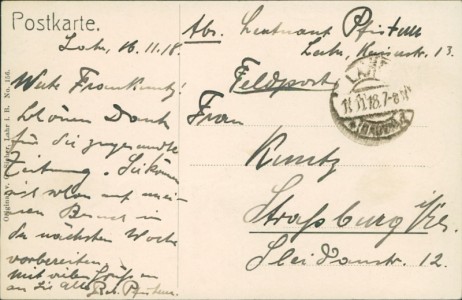 Postkarte.
Lahr, 16.11.18.
Werte Frau Kuntz!
Schönen Dank
für die zugesandte
Zeitung. Sie können
sich schon auf mei-
nen Besuch in
der nächsten Woche
vorbereiten.
Mit vielen Grüßen
an Sie Alle Rob. Pfisterer.
Abs. Leutnant Pfisterer
Lahr, Kaiserstr. 13.
Feldpost
Frau
Kuntz
Straßburg i/Els.
Sleidanstr. 12.
LAHR
16.11.18.7-8
(BADEN)
Lahr i. B. No. 156.